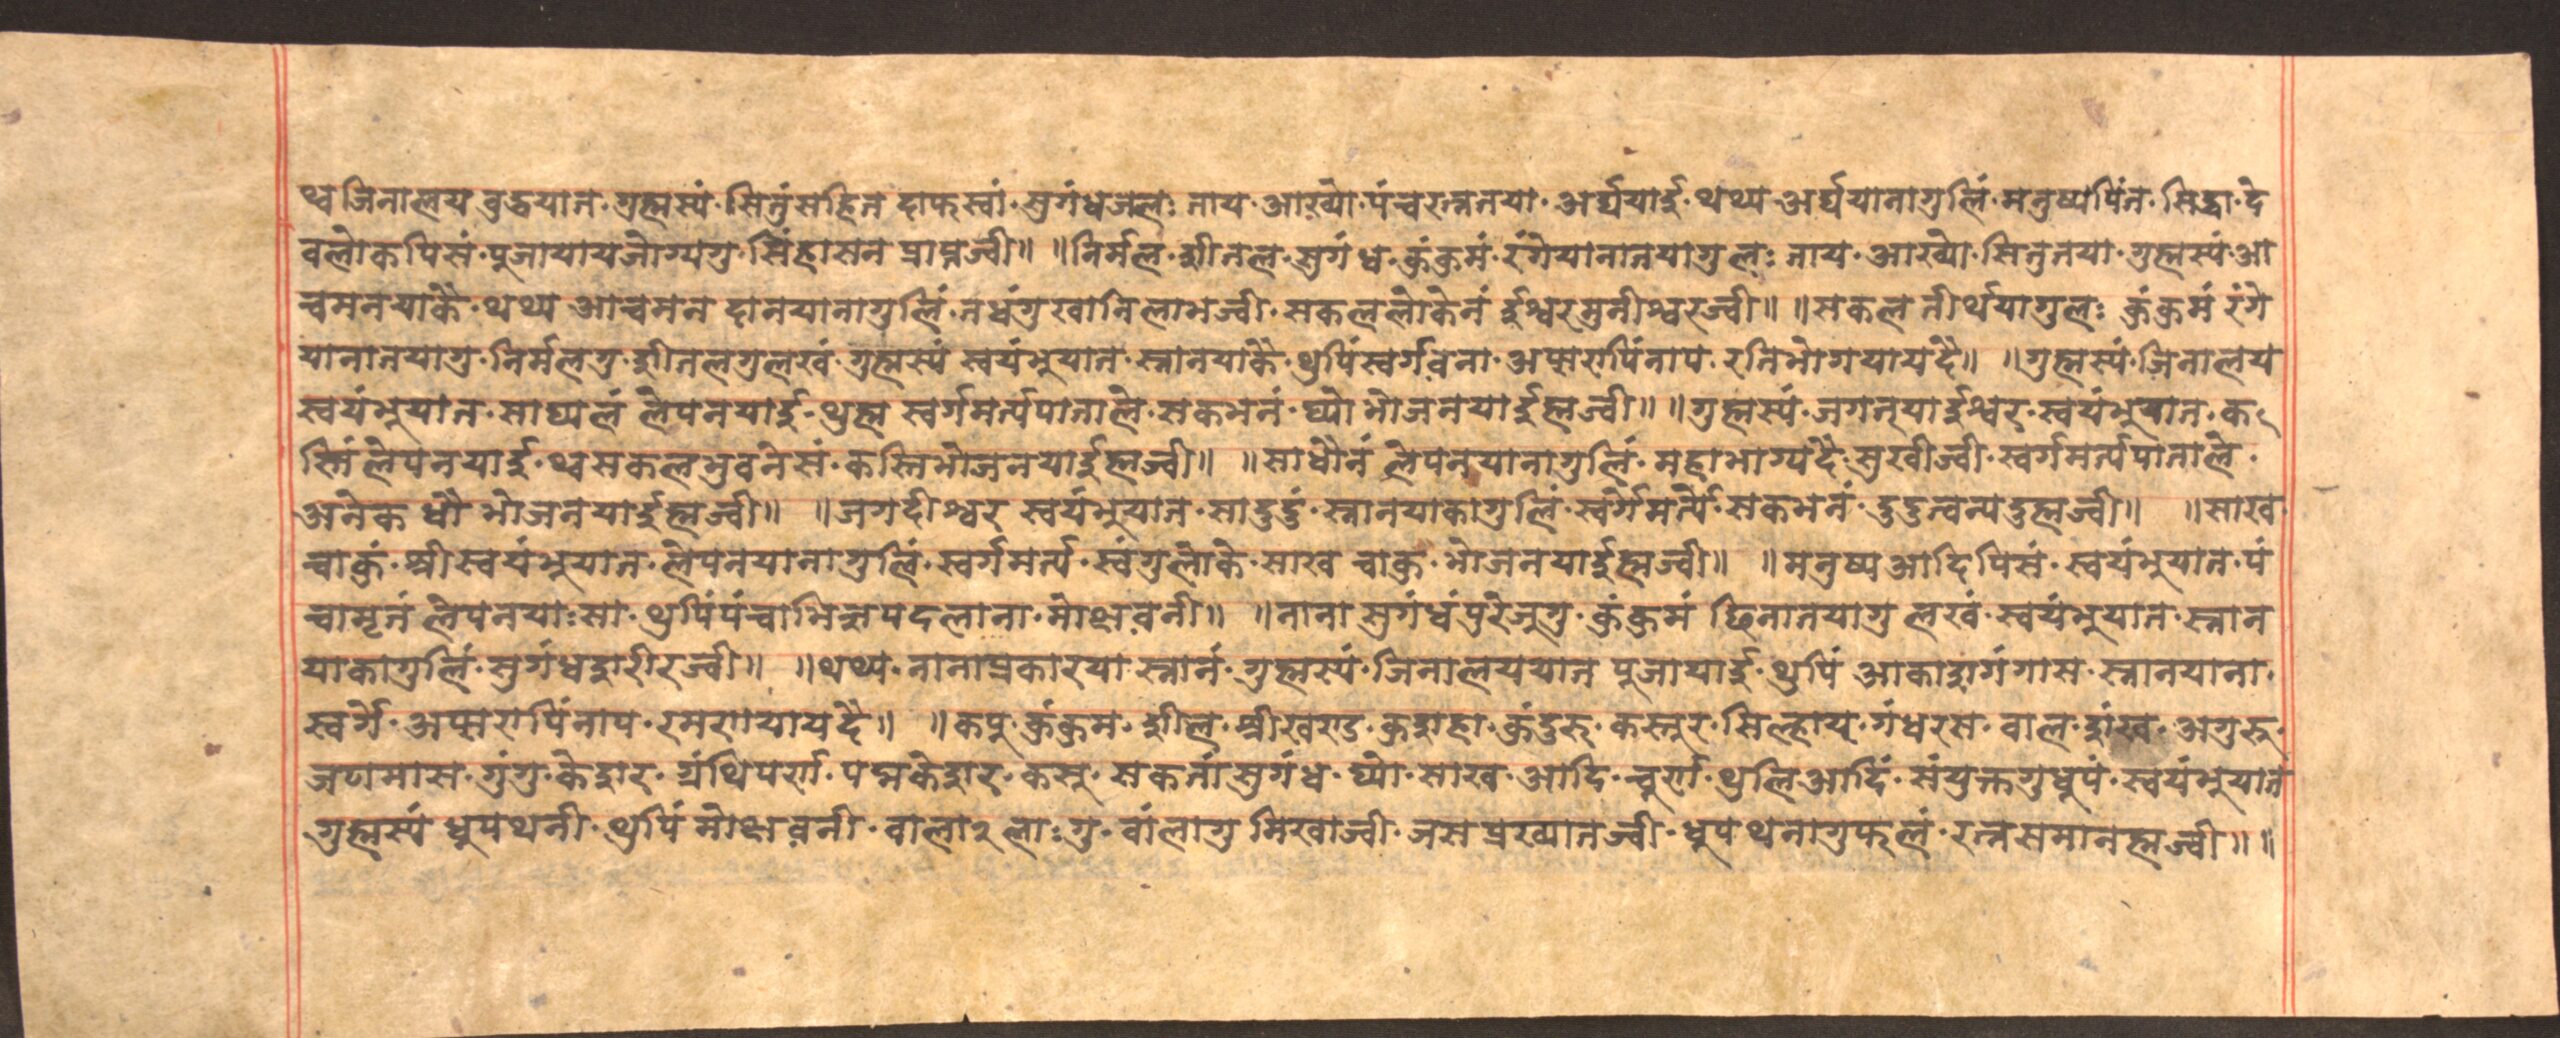 थ्व जिनालय वुद्धयात · गुह्मस्यं · सितुंसहित दाफस्वां · सुगंधजलः नाय · आख्यो · पंचरत्नतया · अर्घ्ययार्इ · थथ्य अर्घ्ययानागुलिं · मनुष्यपिंत · सिद्धा · दे
वलोकपिसं · पुजायायजोग्यगु · सिंहासन प्राप्तज्वी॥ ॥निर्मल · शीतल · सुगंध्व · क्रंकुमं · रंगेयानातयागुलः नाय · आख्यो · सितुतया · गुह्मस्यं · आ
चमनयाकै · थथ्य आचमन दानयानागुलिं · नधंगु खानिलाभज्वी · सकललोकेनं र्इश्वरमुनीश्वरज्वी॥ ॥सकल तीर्थयागुलः क्रंकुमं रंगे
यानातयागु · निर्मलगु · शीतलगुलखं · गुह्मस्यं स्वयंभुयात · स्नानयाकै · थुपिंस्वर्गवना · अप्सरापिंनाप · रतिभोगयायदै॥ ॥गुह्मस्यं · जिनालय
स्वयंभुयात · साघ्यलं लेपनयार्इ · थुह्म स्वर्गमर्त्यपाताले · सकभनं · घ्यो भोजनयार्इह्मज्वी॥ ॥गुह्मस्यं · जगत्यार्इश्वर · स्वयंभुयात · क
स्तिं लेपनयार्इ · थ्वसकलभुवनेसं · कस्तिभोजनयार्इह्मज्वी॥ ॥साधौनं लेपनयानागुलिं · महाभाग्यदै · सुखीज्वी · स्वर्गमर्त्यपाताले ·
अनेक धौ भोजनयार्इह्मज्वी॥ ॥जगदीश्वर स्वयंभुयात · सादुदुं · स्नानयाकागुलिं · स्वर्गेमर्त्ये · सकभनं · दुदुत्वन्यदुह्मज्वी॥ ॥साख
चाकुं · श्रीस्वयंभुयात · लेपनयानागुलिं · स्वर्गमर्त्य · स्वंगुलोके · साख चाकु भोजनयार्इह्मज्वी॥ ॥मनुष्य आदिपिसं · स्वयंभुयात · पं
चामृतं लेपनयाःसा · थुपिंपंचाभिज्ञपदलाना · मोक्षवनी॥ ॥नाना सुगंधंपुरेजुगु · क्रंकुमं छिनातयागु लखं · स्वयंभुयात · स्नान
याकागुलिं · सुगंधशरीरज्वी॥ ॥थथ्य · नानाप्रकारया स्नानं · गुह्मस्यं · जिनालययात पुजायार्इ · थुपिं आकाशगंगास · स्नानयाना ·
स्वर्गे · अप्सरापिंनाप · रमणयायदै॥ ॥कपु · क्रंकुम · शील · श्रीखण्ड · क्रशहा · क्रंदुरु · कस्तुर · सिल्हाय् · गंधरस · वाल · शंख · अगुरु ·
जटामास · गुंगु · केशर · ग्रंथिपर्ण · पद्मकेशर · कसु · सकतां सुगंध · घ्यो · साख · आदि · चुर्ण · थुलिआदिं · संयुक्तगुधुपं · स्वयंभुयात
गुह्मस्यं धुपथनी · थुपिं मोक्षवनी · वालारलाःगु · वांलागु मिखाज्वी · जसप्रख्यातज्वी · धुपथनागुफलं · रत्नसमानह्मज्वी॥॥